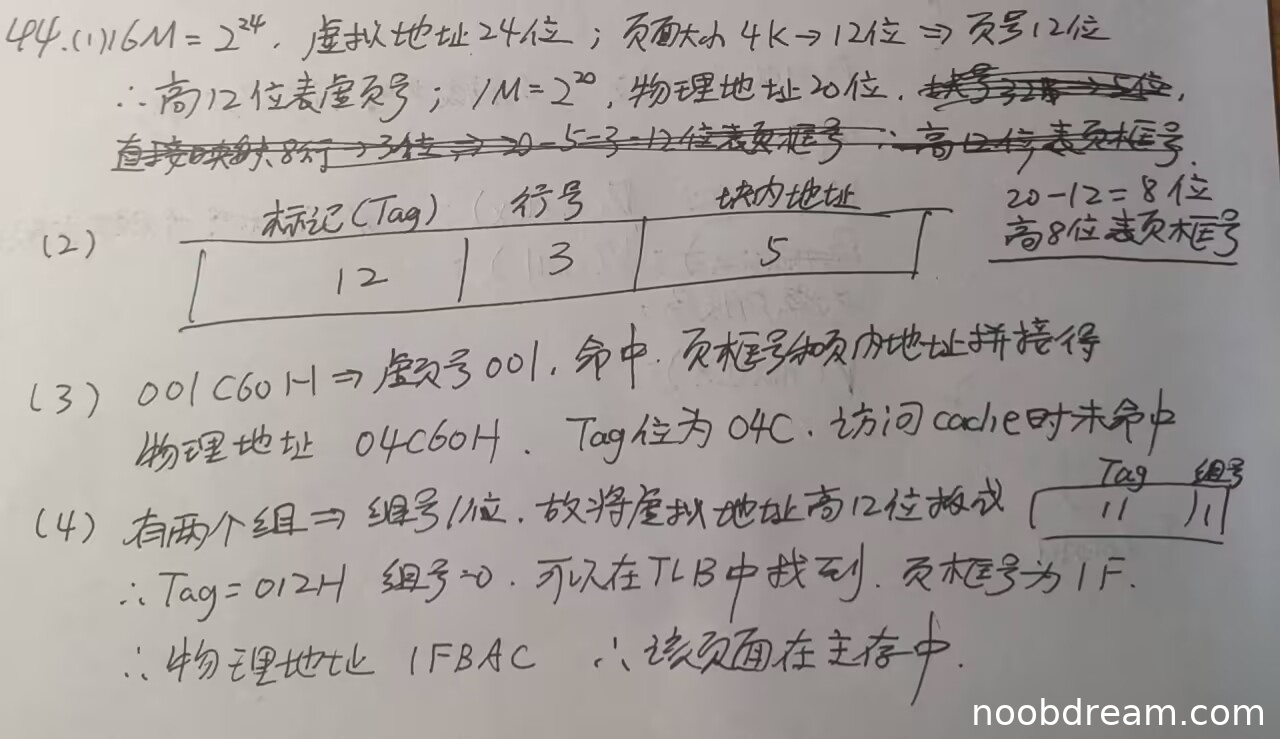 44.(1)16M=2²⁴. 虚拟地址24位；页面大小4K→12位⇒页号12位
∴高12位表虚页号；1M=2²⁰,物理地址20位.块号32B→5位,
直接映射,8行→3位⇒20-5-3=12位表页框号∴高12位表页框号.
20-12=8位
高8位表页框号
(2) 标记(Tag) 行号 块内地址
12 3 5
(3) 001C60H⇒虚页号001,命中.页框号和页内地址拼接得
物理地址 04C60H. Tag位为04C.访问cache时未命中
(4) 有两个组⇒组号1位.故将虚拟地址高12位拆成
Tag 组号
11 1
∴Tag=012H 组号=0.可以在TLB中找到.页框号为1F.
∴物理地址 1FBAC ∴该页面在主存中.
noobdream.com